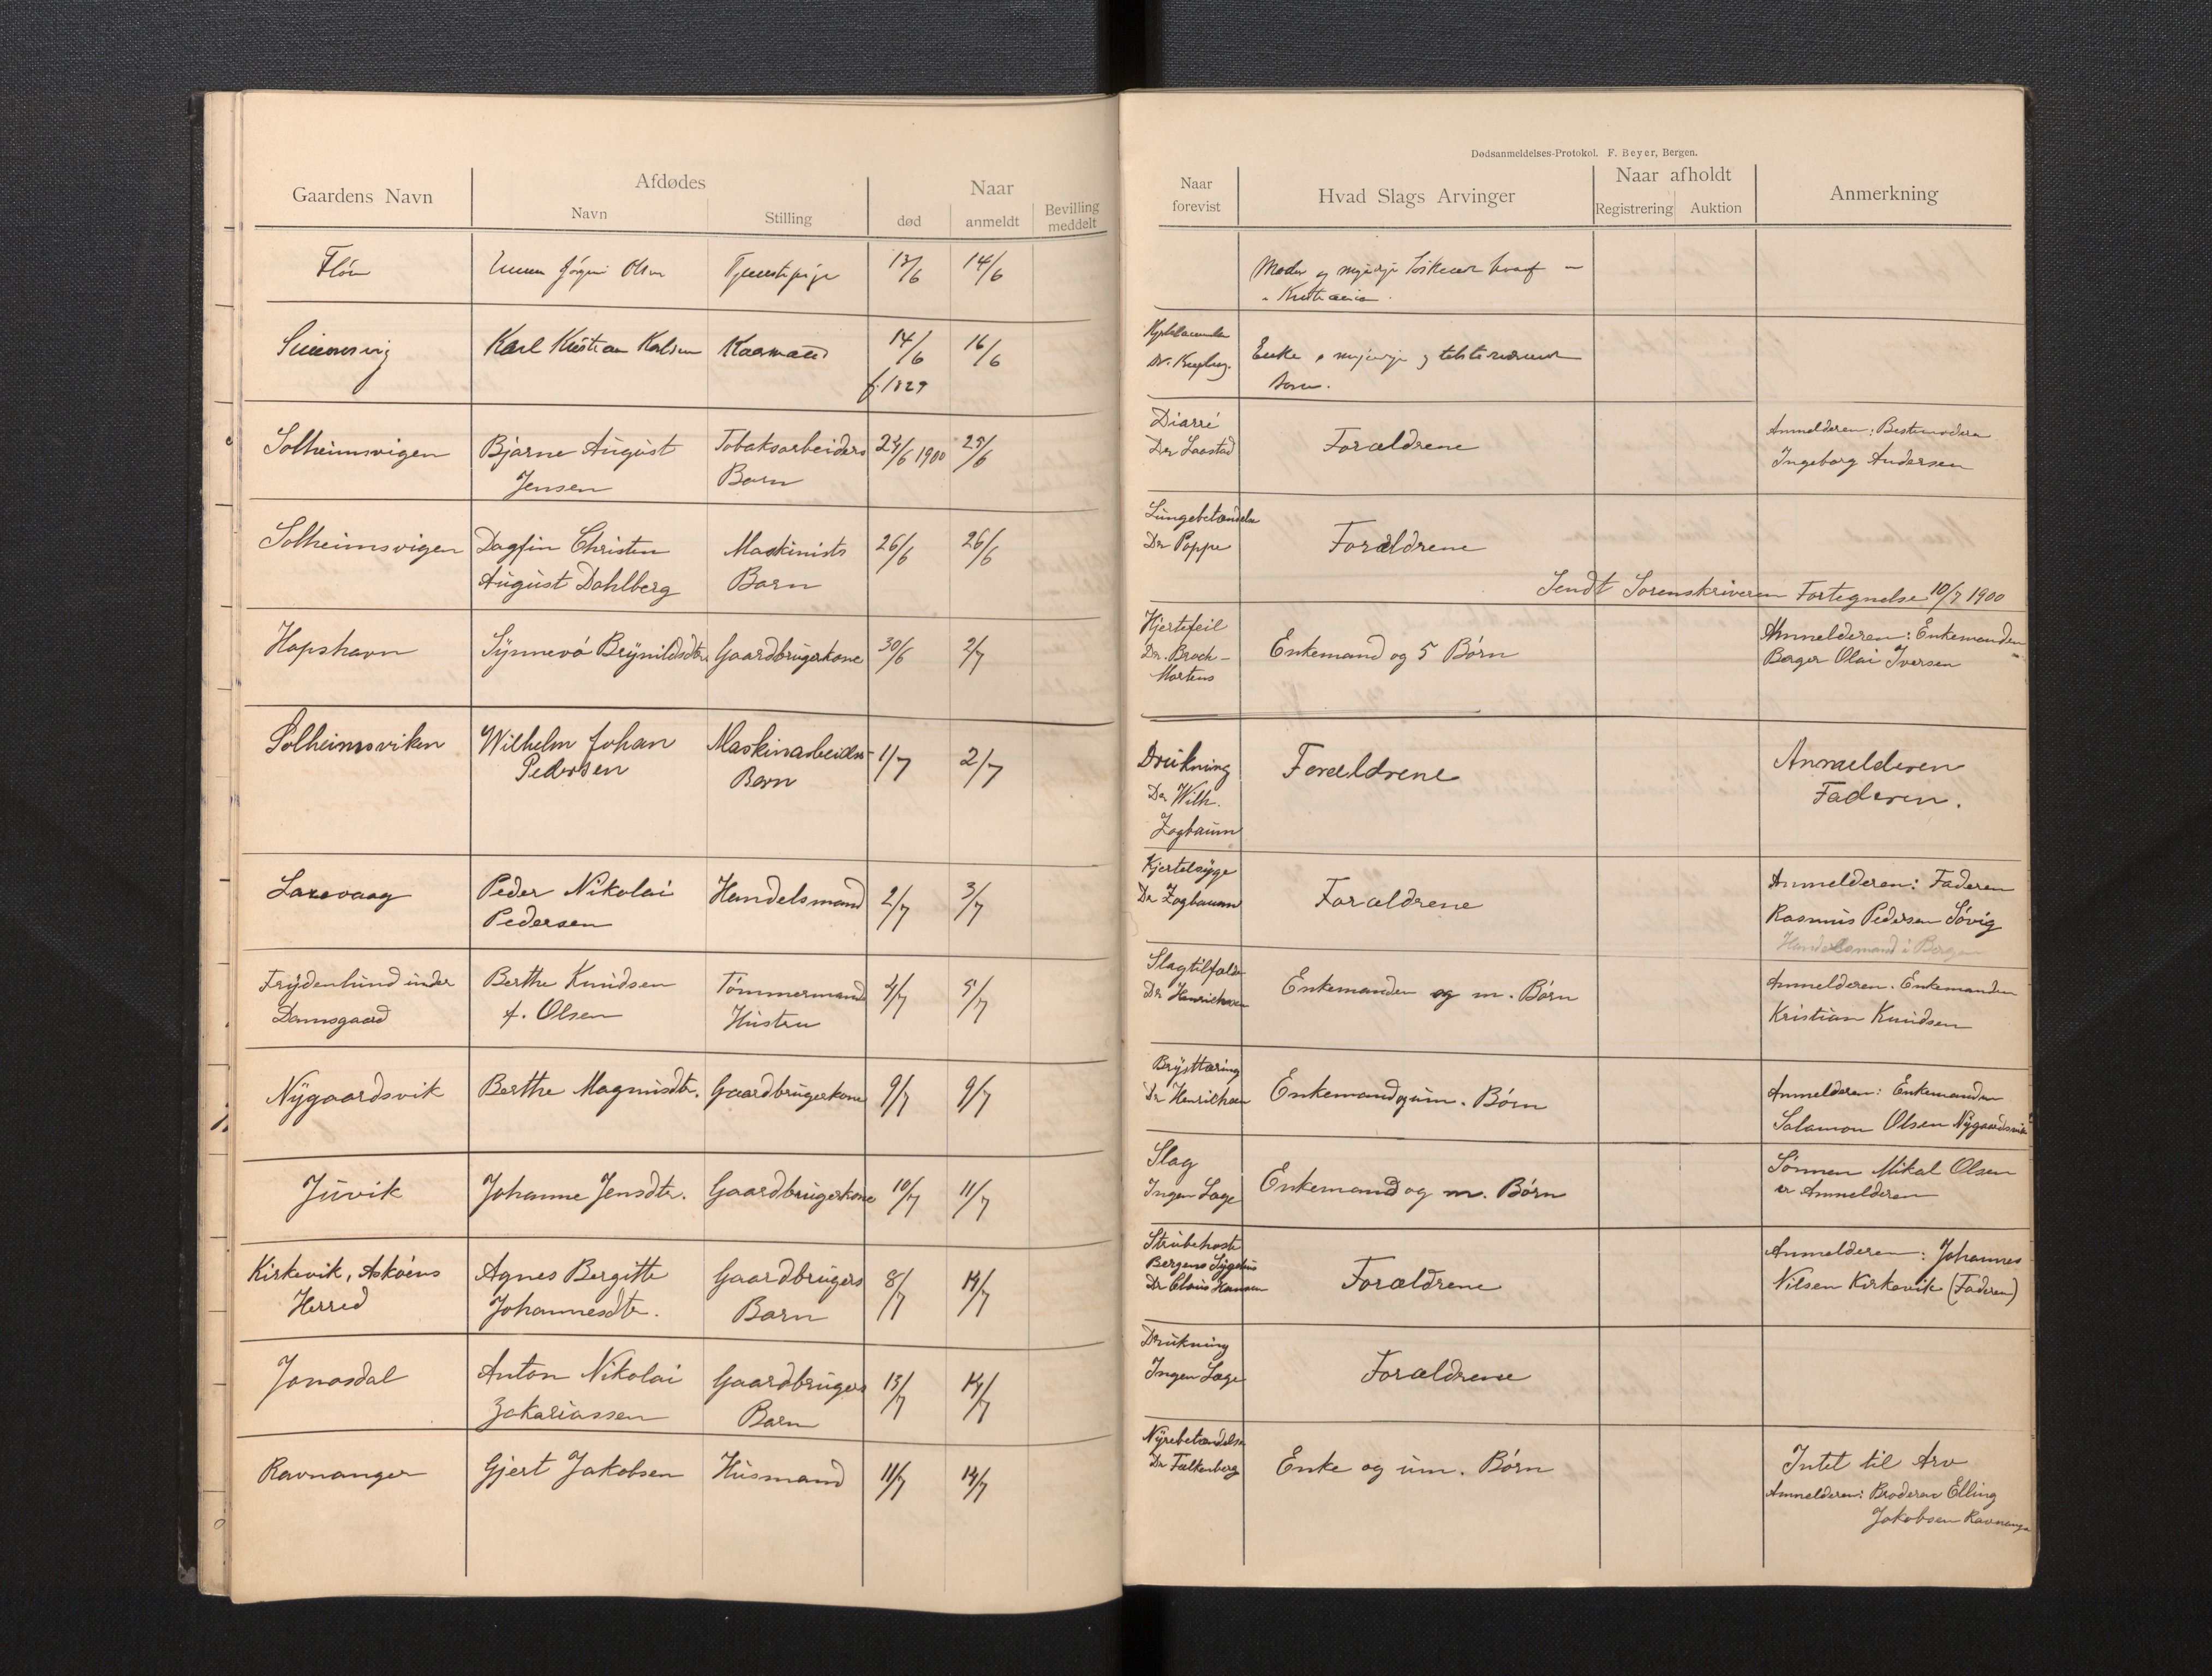 Dødsanmeldelses-Protokol. F. Beyer, Bergen.
Gaardens Navn
Afdødes
Navn
Stilling
Naar
død
anmeldt
Bevilling
meddelt
Naar
forevist
Hvad Slags Arvinger
Naar afholdt
Registrering
Auktion
Anmerkning
Olsen
Tjenestepige
13/6
14/6
Moder og myndige
Karl Kristian Karlsen
14/6
16/6
f. 1829
Enke
Solheimsvigen
Bjarne August
Jensen
Tobaksarbeiders
Barn
24/6 1900
25/6
Diarré
Dr Laastad
Forældrene
Anmelderen: Bestemoderen
Ingeborg Andersen
Solheimsvigen
Dagfin Christen
August Dahlberg
Maskinists
Barn
26/6
26/6
Lungebetændelse
Dr Poppe
Forældrene
Sendt Sorenskriveren Fortegnelse 10/7 1900
Hopshavn
Synnevó Brynildsdtr
Gaardbrugerkone
30/6
2/7
Hjertefeil
Dr. Broch-
Martens
Enkemand og 5 Børn
Anmelderen: Enkemanden
Berger Olai Iversen
Solheimsviken
Wilhelm Johan
Pedersen
Maskinarbeiders
Barn
1/7
2/7
Drukning
Dr Wilh.
Zogbaum
Forældrene
Anmelderen
Faderen.
Laxevaag
Peder Nikolai
Pedersen
Handelsmand
2/7
3/7
Kjertelsyge
Dr Zogbaum
Forældrene
Anmelderen: Faderen
Rasmus Pedersen Søvig
Handelsmand i Bergen
Frydenlund under
Damsgaard
Berthe Knudsen
f. Olsen
Tømmermand
Hustru
4/7
5/7
Slagtilfælde
Dr Henrichsen
Enkemanden og m. Børn
Anmelderen. Enkemanden
Kristian Knudsen
Nygaardsvik
Berthe Magnusdtr.
Gaardbrugerkone
9/7
9/7
Brysttæring
Dr Henrichsen
Enkemand og um. Børn
Anmelderen: Enkemanden
Salamon Olsen Nygaardsvik
Juvik
Johanne Jensdtr.
Gaardbrugerkone
10/7
11/7
Slag
Ingen Læge
Enkemand og m. Børn
Sønnen Mikal Olsen
er Anmelderen
Kirkevik, Askøens
Herred
Agnes Bergitte
Johannesdtr.
Gaardbrugers
Barn
8/7
14/7
Strubehoste
Bergens Sygehus
Dr Claus Hansen
Forældrene
Anmelderen: Johannes
Nilsen Kirkevik (Faderen)
Jonasdal
Anton Nikolai
Zakariassen
Gaardbrugers
Barn
13/7
14/7
Drukning
Ingen Læge
Forældrene
Ravnanger
Gjert Jakobsen
Husmand
11/7
14/7
Nyrebetændelse
Dr Falkenberg
Enke og um. Børn
Intet til Arv
Anmelderen: Broderen Elling
Jakobsen Ravnanger